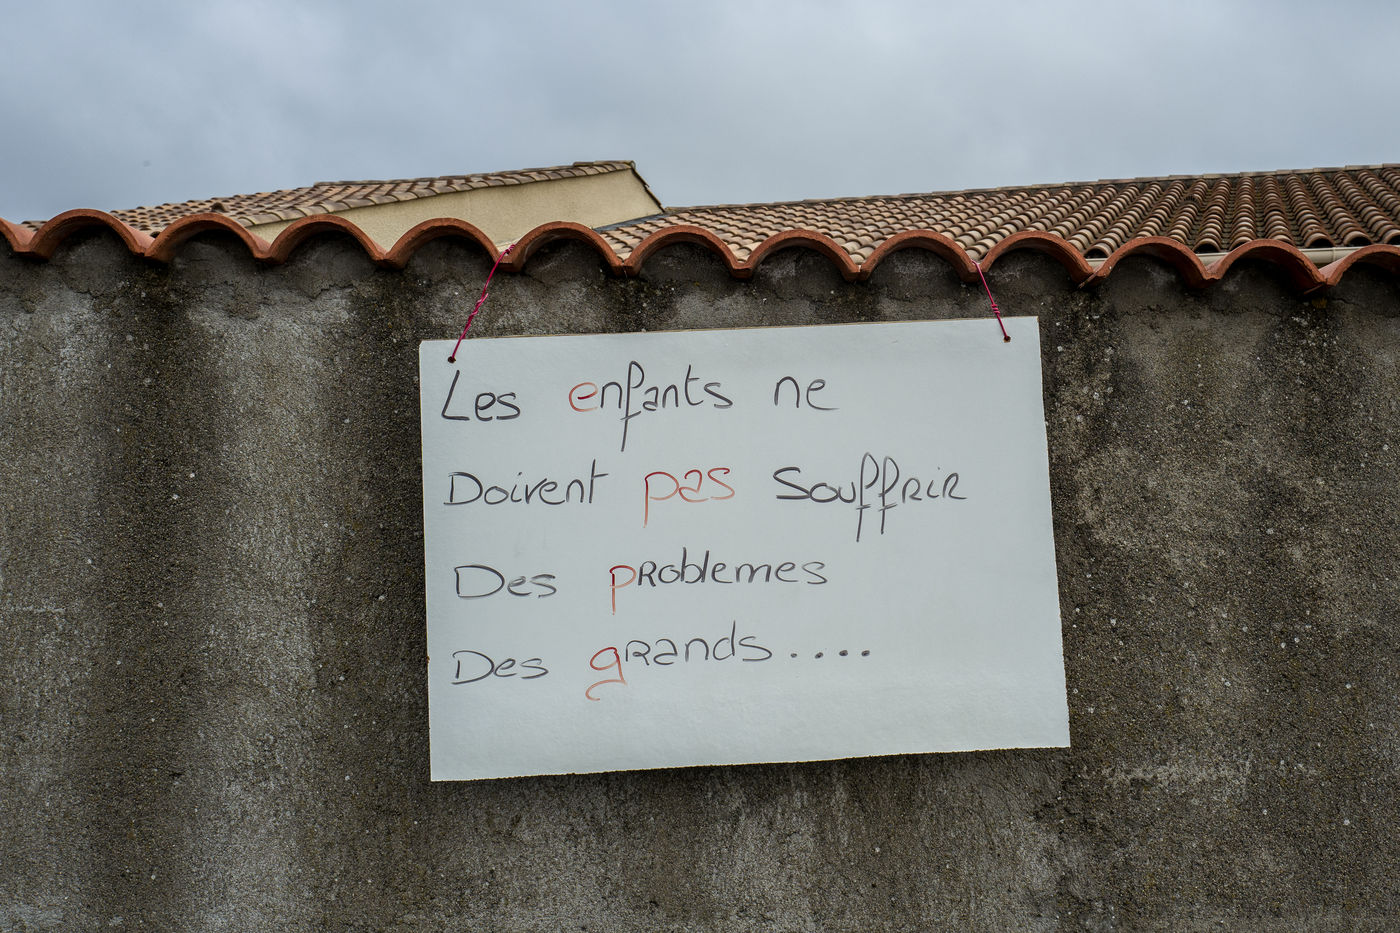 Les enfants ne
Doivent pas souffrir
Des problemes
Des grands....